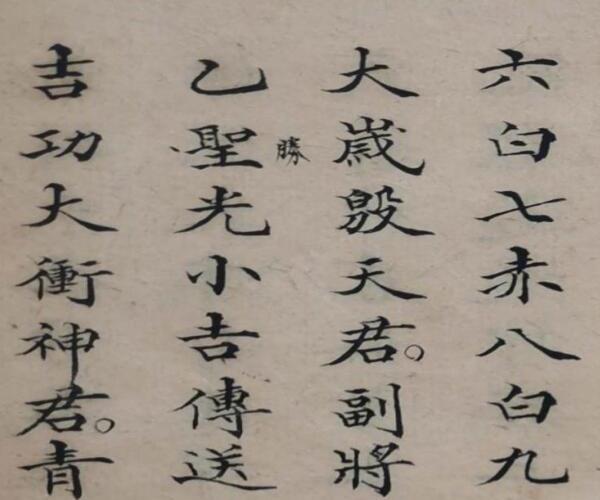 六白七赤八白九
大歲殷天君。副將
乙聖光小吉傳送
勝
吉功大衝神君。青